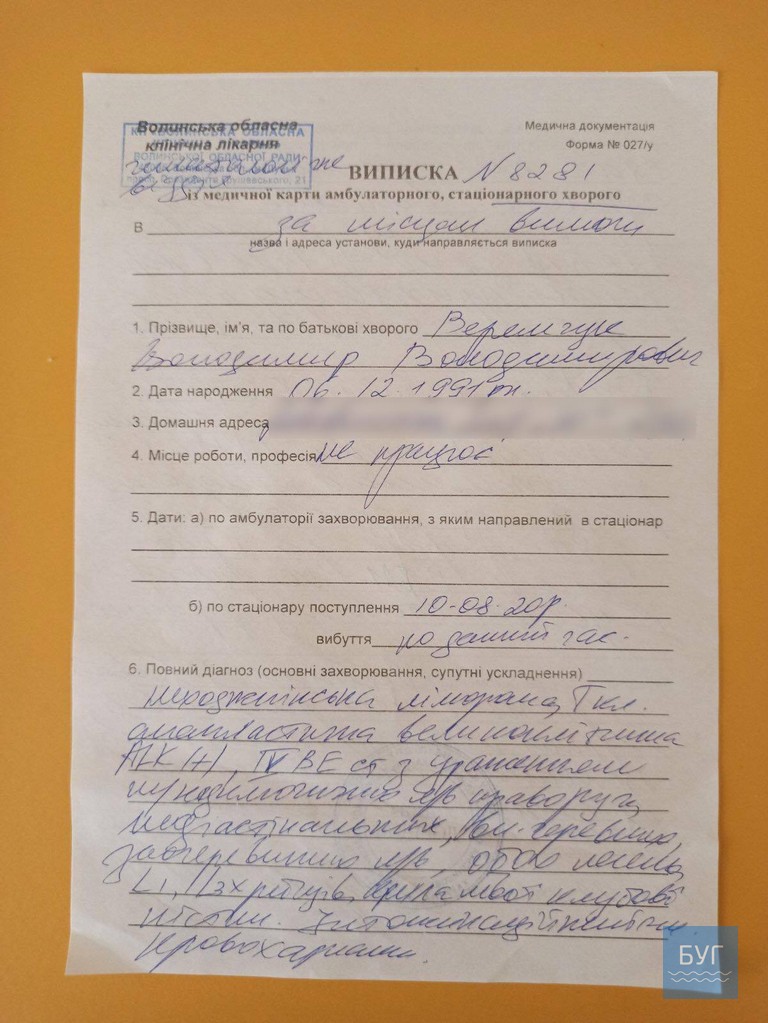 Волинська обласна
клінічна лікарня
Медична документація
Форма № 027/у
ВИПИСКА N 8281
із медичної карти амбулаторного, стаціонарного хворого
В за місцем вимоги
назва і адреса установи, куди направляється виписка
1. Прізвище, ім'я, та по батькові хворого Веремчук
Володимир Володимирович
2. Дата народження 06.12.1991
3. Домашня адреса
4. Місце роботи, професія не працює
5. Дати: а) по амбулаторії захворювання, з яким направлений в стаціонар
б) по стаціонару поступлення 10-08-20р.
вибуття по даний час.
6. Повний діагноз (основні захворювання, супутні ускладнення)
неходжкінська лімфома, Т кл.
анапластична великоклітинна
ALK (+), IV BE ст з ураженням
л/в праворуч,
медіастинальних,
заочеревинних л/в, обох легень,
L1, ребра, клубової
кістки. Інтоксикаційний с-м.
Кровохаркання.
БУГ